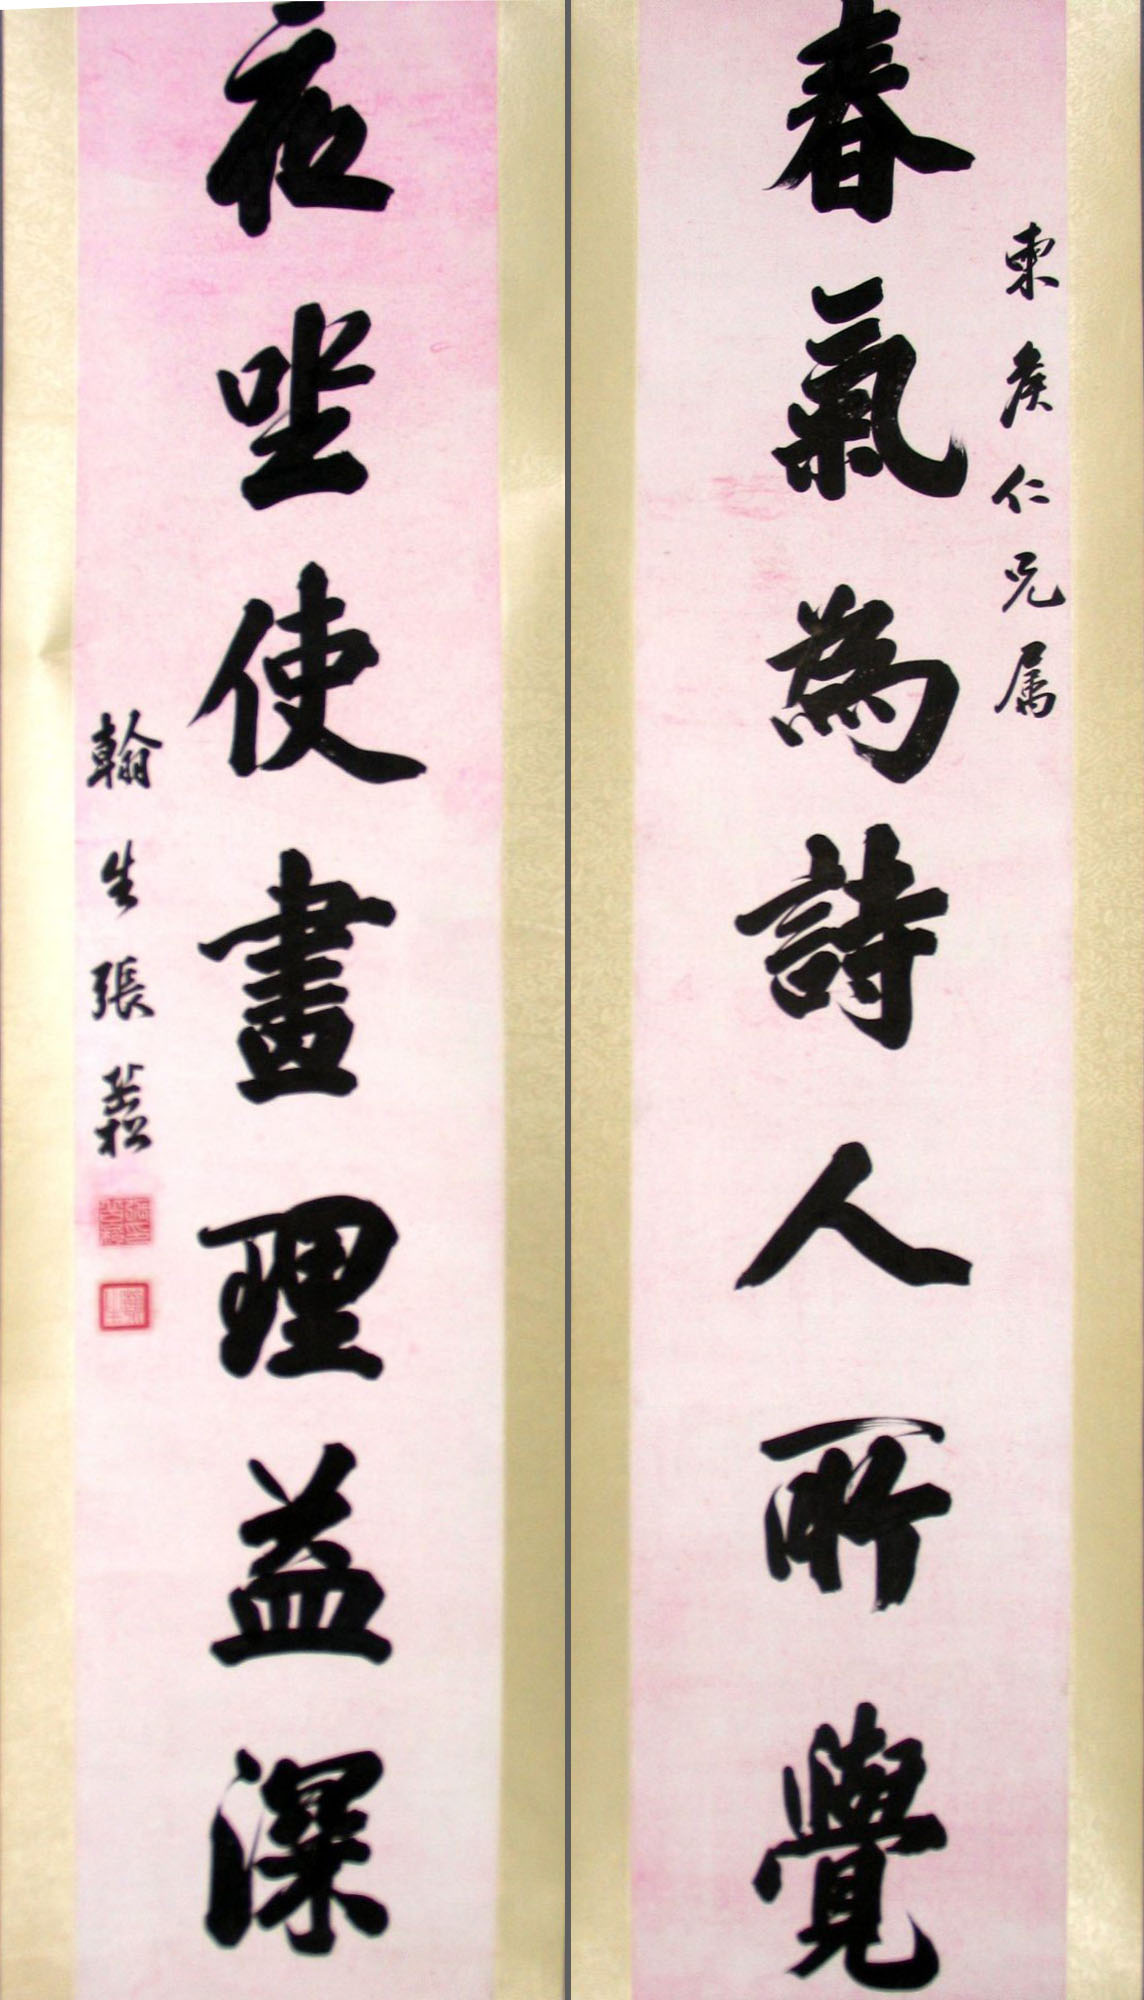 東侯仁兄属
春氣為詩人所覺
夜坐使畫理益深
翰生張菘